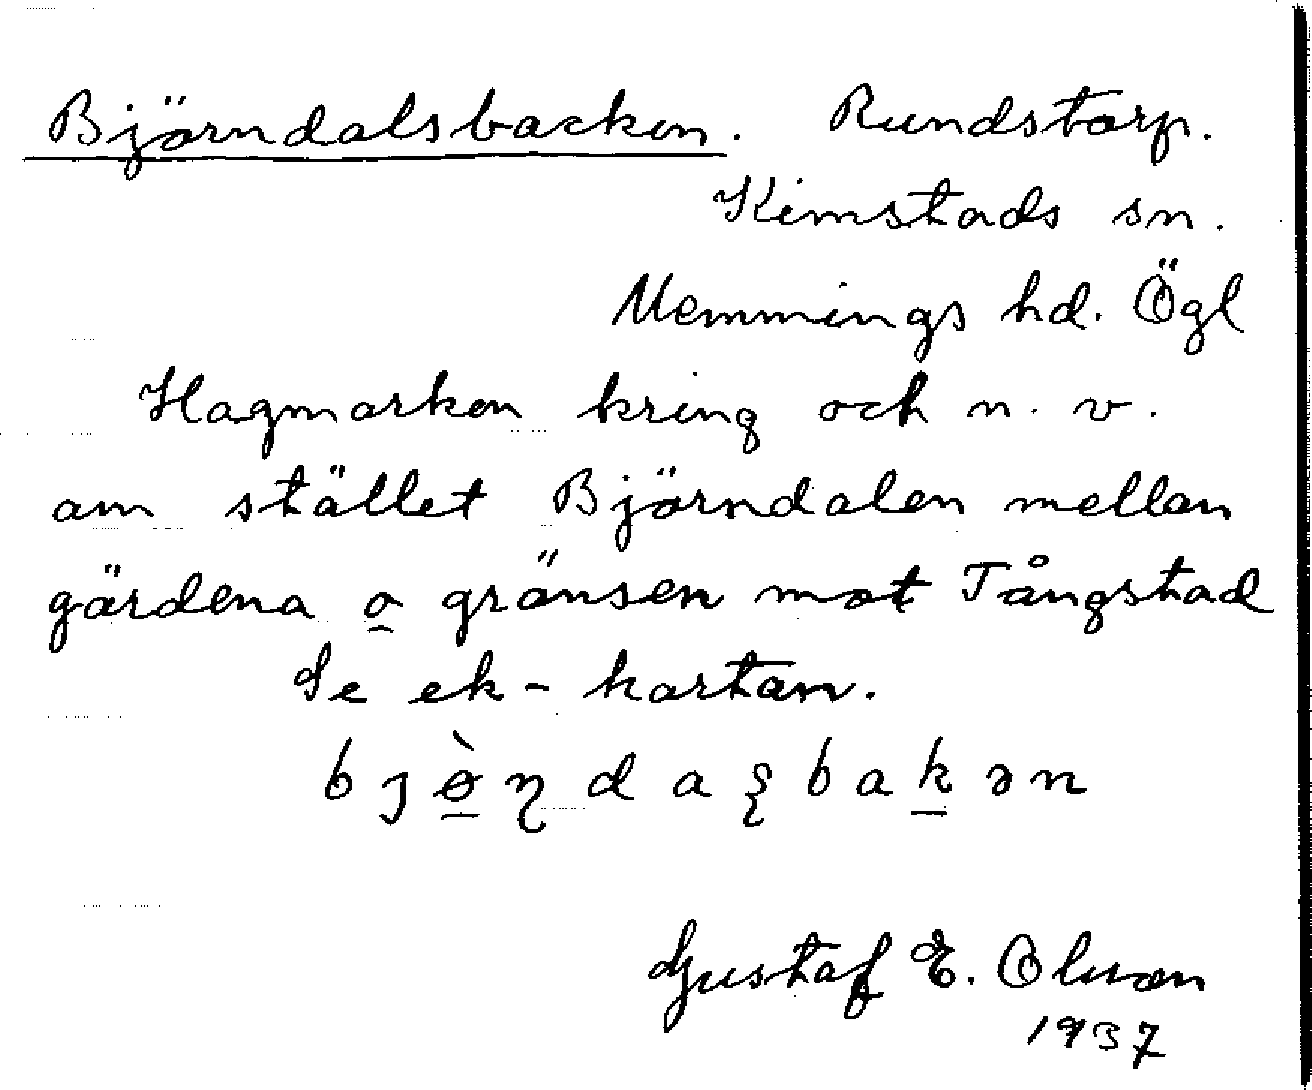 Björndalsbacken. Rundstorp.
Kimstads sn.
Memmings hd. Ögl
Hagmarken kring och n. v.
om stället Björndalen mellan
gärdena o gränsen mot Tångstad
Se ek-kartan.
bjø̀ɳdaʂbakən
Gustaf E. Olson
1937